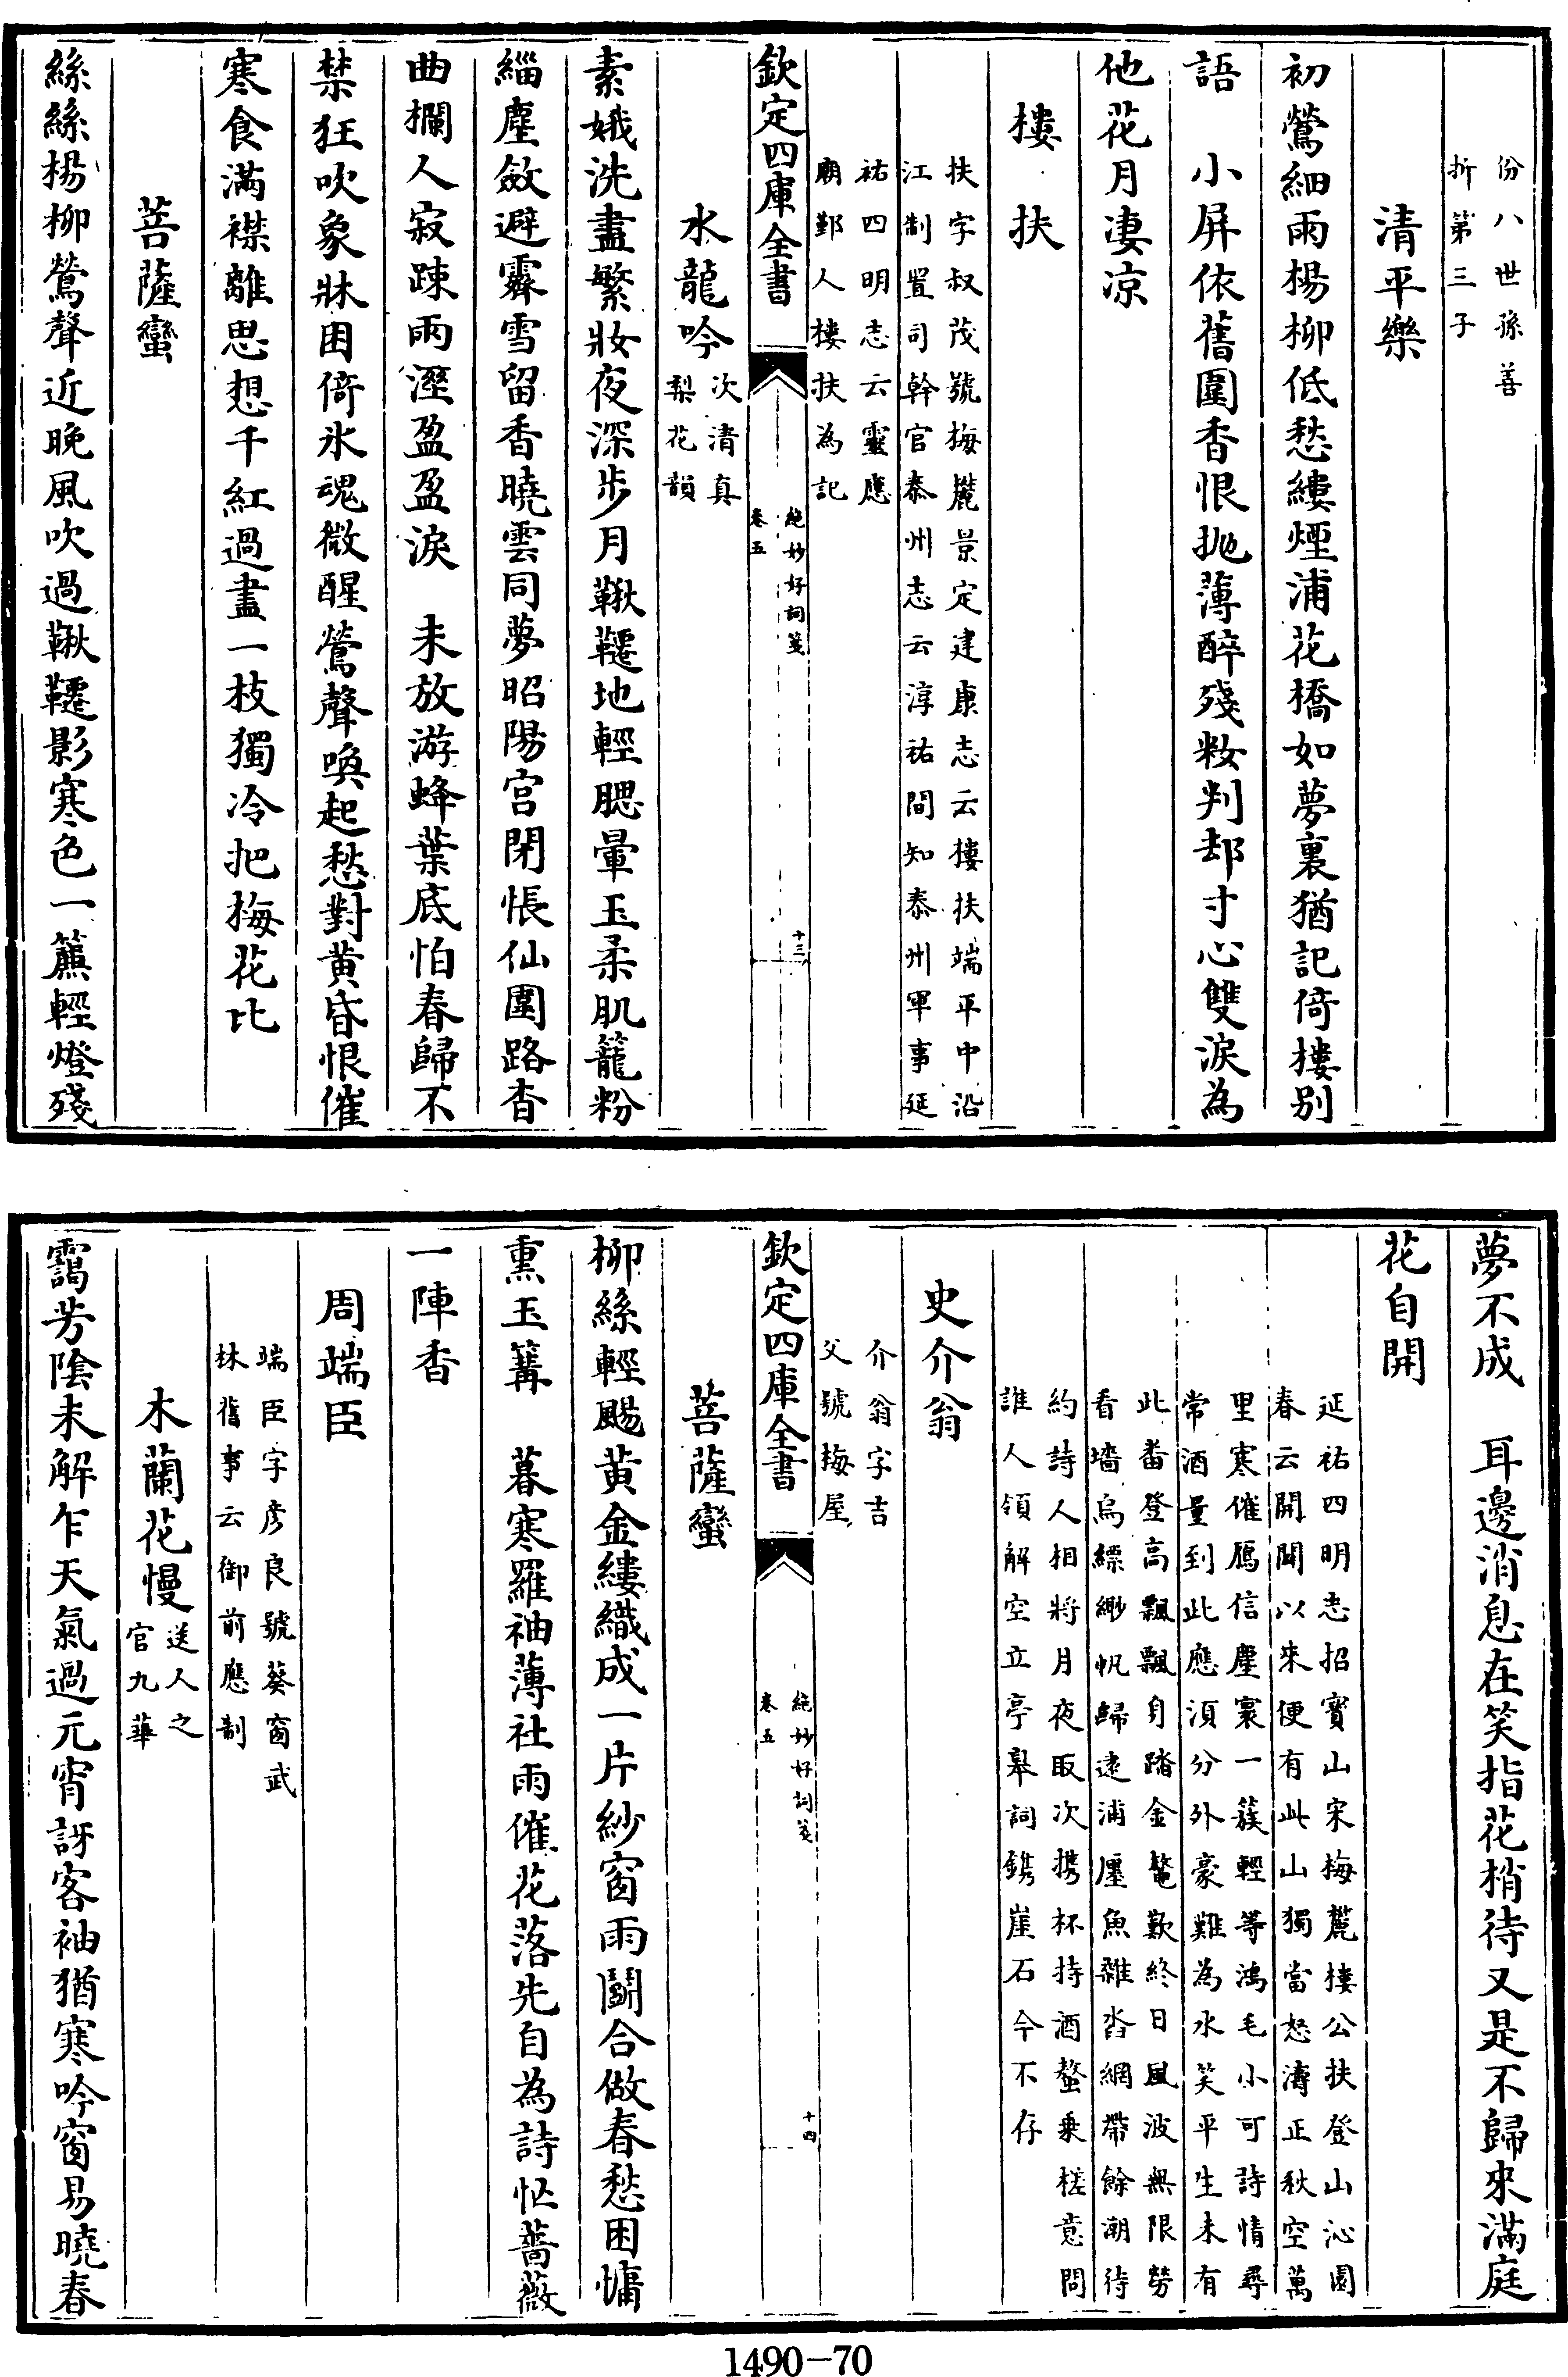 份八世孫善
折第三子
清平樂
初鶯細雨楊柳低愁縷煙浦花橋如夢裏猶記倚樓别
語　小屏依舊圍香恨抛薄醉殘妝判却寸心雙淚為
他花月凄凉
樓　扶
扶字叔茂號梅麓景定建康志云樓扶端平中沿
江制置司幹官泰州志云淳祐間知泰州軍事延
祐四明志云靈應
廟鄞人樓扶為記
欽定四庫全書
絶妙好詞箋
卷五
十三
水龍吟
次清真
梨花韻
素娥洗盡繁妝夜深步月鞦韆地輕腮暈玉柔肌籠粉
緇塵斂避霽雪留香曉雲同夢昭陽宫閉悵仙園路杳
曲欄人寂踈雨溼盈盈淚　未放游蜂葉底怕春歸不
禁狂吹象牀困倚氷魂微醒鶯聲喚起愁對黄昏恨催
寒食滿襟離思想千紅過盡一枝獨冷把梅花比
菩薩蠻
絲絲楊柳鶯聲近晚風吹過鞦韆影寒色一簾輕燈殘
夢不成　耳邊消息在笑指花梢待又是不歸來滿庭
花自開
延祐四明志招寳山宋梅麓樓公扶登山沁園
春云開闢以來便有此山獨當怒濤正秋空萬
里寒催鴈信塵寰一簇輕等鴻毛小可詩情尋
常酒量到此應須分外豪難為水笑平生未有
此番登高飄飄身踏金鼇歎終日風波無限勞
看墻烏縹緲帆歸遠浦廛魚雜沓網帶餘潮待
約詩人相將月夜取次携杯持酒螯乗槎意問
誰人領解空立亭臯詞鐫崖石今不存
史介翁
介翁字吉
父號梅屋
欽定四庫全書
絶妙好詞箋
卷五
十四
菩薩蠻
柳絲輕颺黄金縷織成一片紗窗雨鬭合做春愁困慵
熏玉篝　暮寒羅袖薄社雨催花落先自為詩忙薔薇
一陣香
周端臣
端臣字彦良號葵窗武
林舊事云御前應制
木蘭花慢
送人之
官九華
靄芳陰未解乍天氣過元宵訝客袖猶寒吟窗易曉春
1490-70